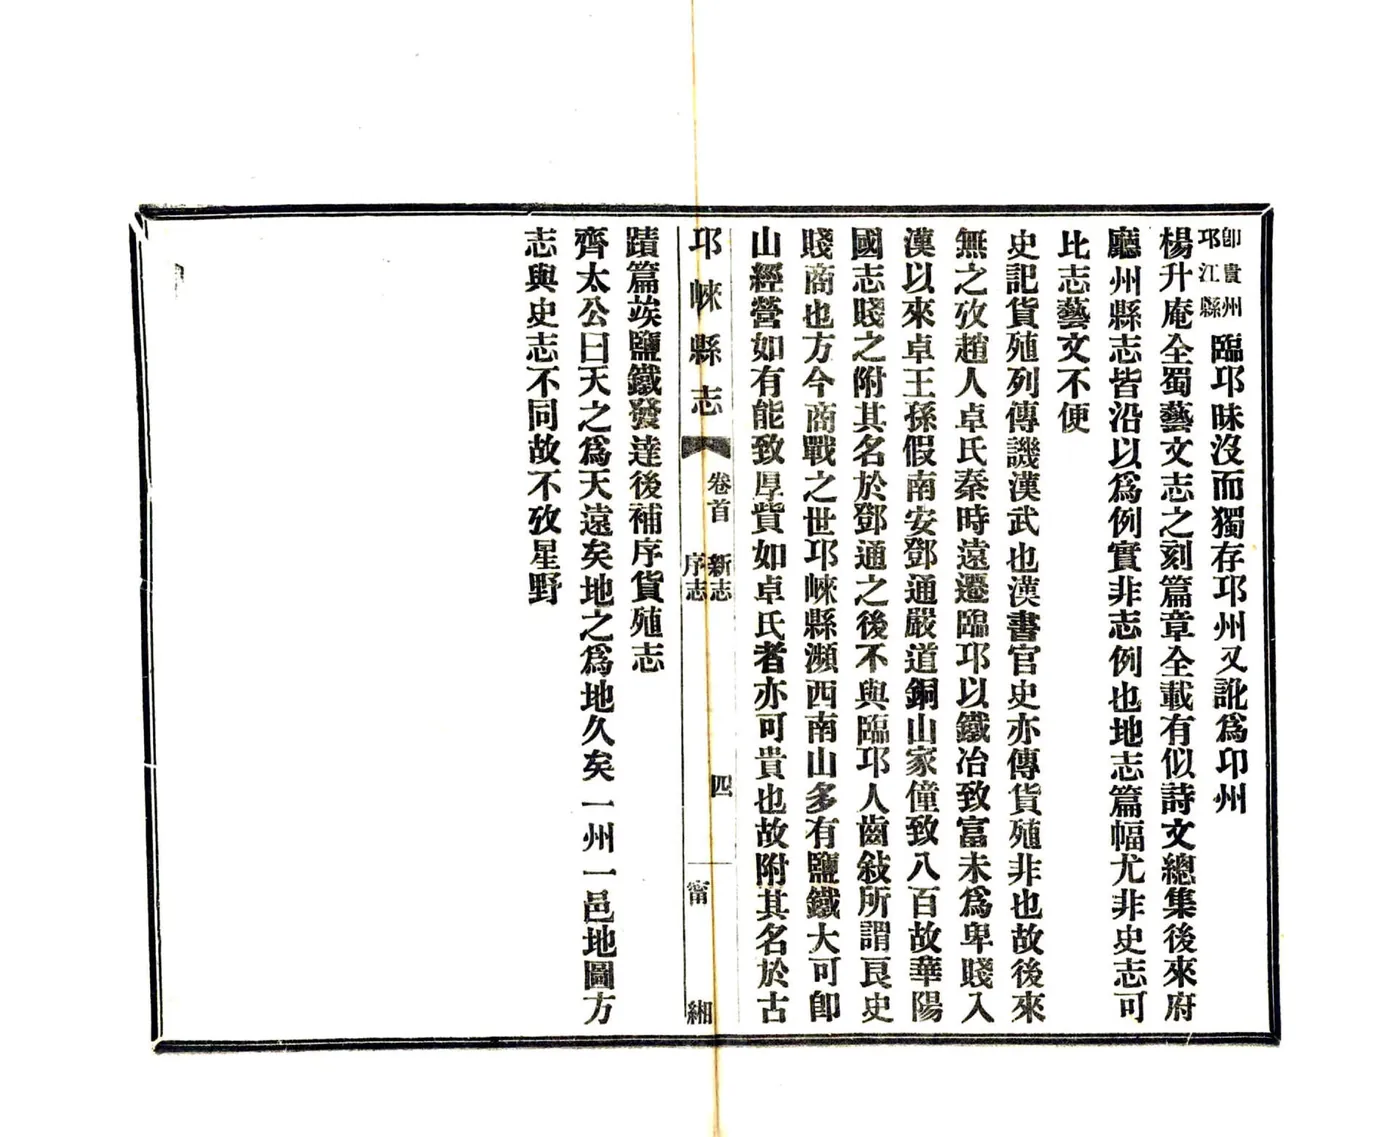 卽貴州
邛江縣
臨邛昧沒而獨存邛州又訛爲卭州
楊升庵全蜀藝文志之刻篇章全載有似詩文總集後來府
廳州縣志皆沿以爲例實非志例也地志篇幅尤非史志可
比志藝文不便
史記貨殖列傳譏漢武也漢書官史亦傳貨殖非也故後來
無之攷趙人卓氏秦時遠遷臨邛以鐵冶致富未爲卑賤入
漢以來卓王孫假南安鄧通嚴道銅山家僮致八百故華陽
國志賤之附其名於鄧通之後不與臨邛人齒敍所謂良史
賤商也方今商戰之世邛崍縣瀕西南山多有鹽鐵大可卽
山經營如有能致厚貲如卓氏者亦可貴也故附其名於古
邛崍縣志
卷首
新志
序志
四
甯
緗
蹟篇俟鹽鐵發達後補序貨殖志
齊太公曰天之爲天遠矣地之爲地久矣一州一邑地圖方
志與史志不同故不攷星野